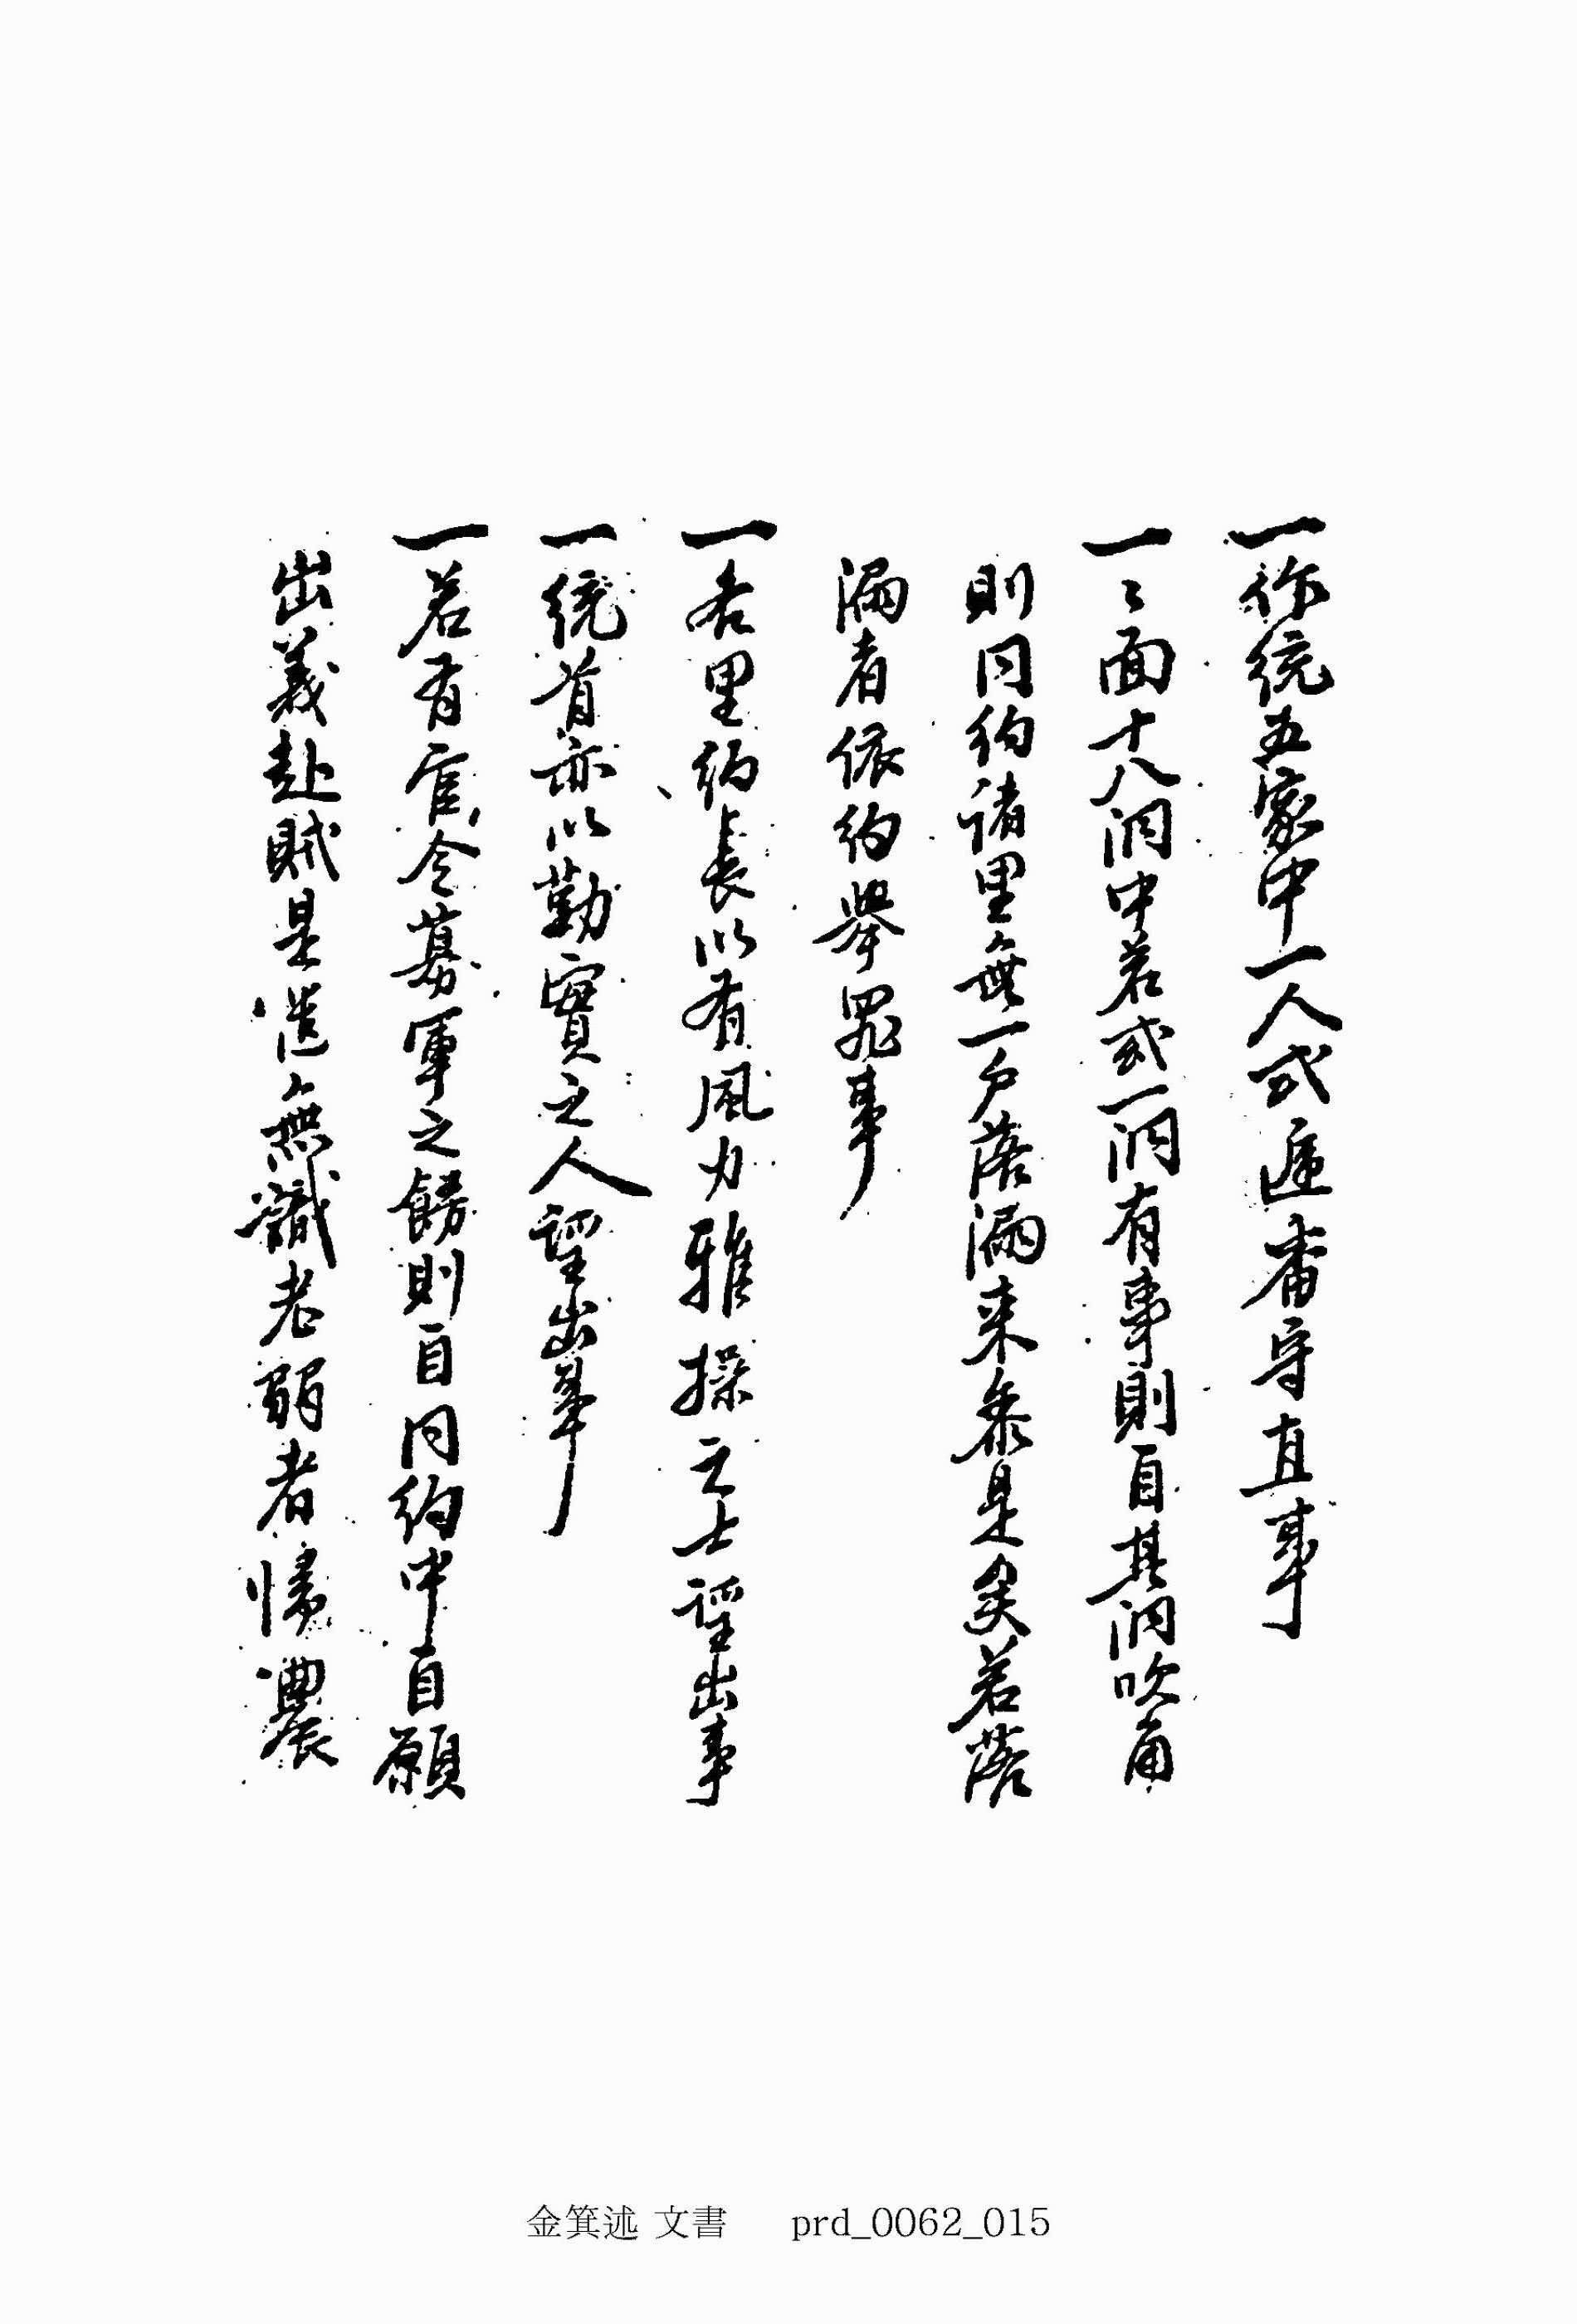 一作統五家中一人式遞番守直事
一〻面十八洞中若或一洞有事則自其洞吹角
則同約諸里無一戶落漏来參是矣若落
漏者依約擧罪事
一各里約長以有風力雅操之士望出事
一統首亦以勤實之人望出事
一若有官令募軍之飭則自同約中自願
出義赴賊是遣無識老弱者歸農
金箕述 文書 prd_0062_015